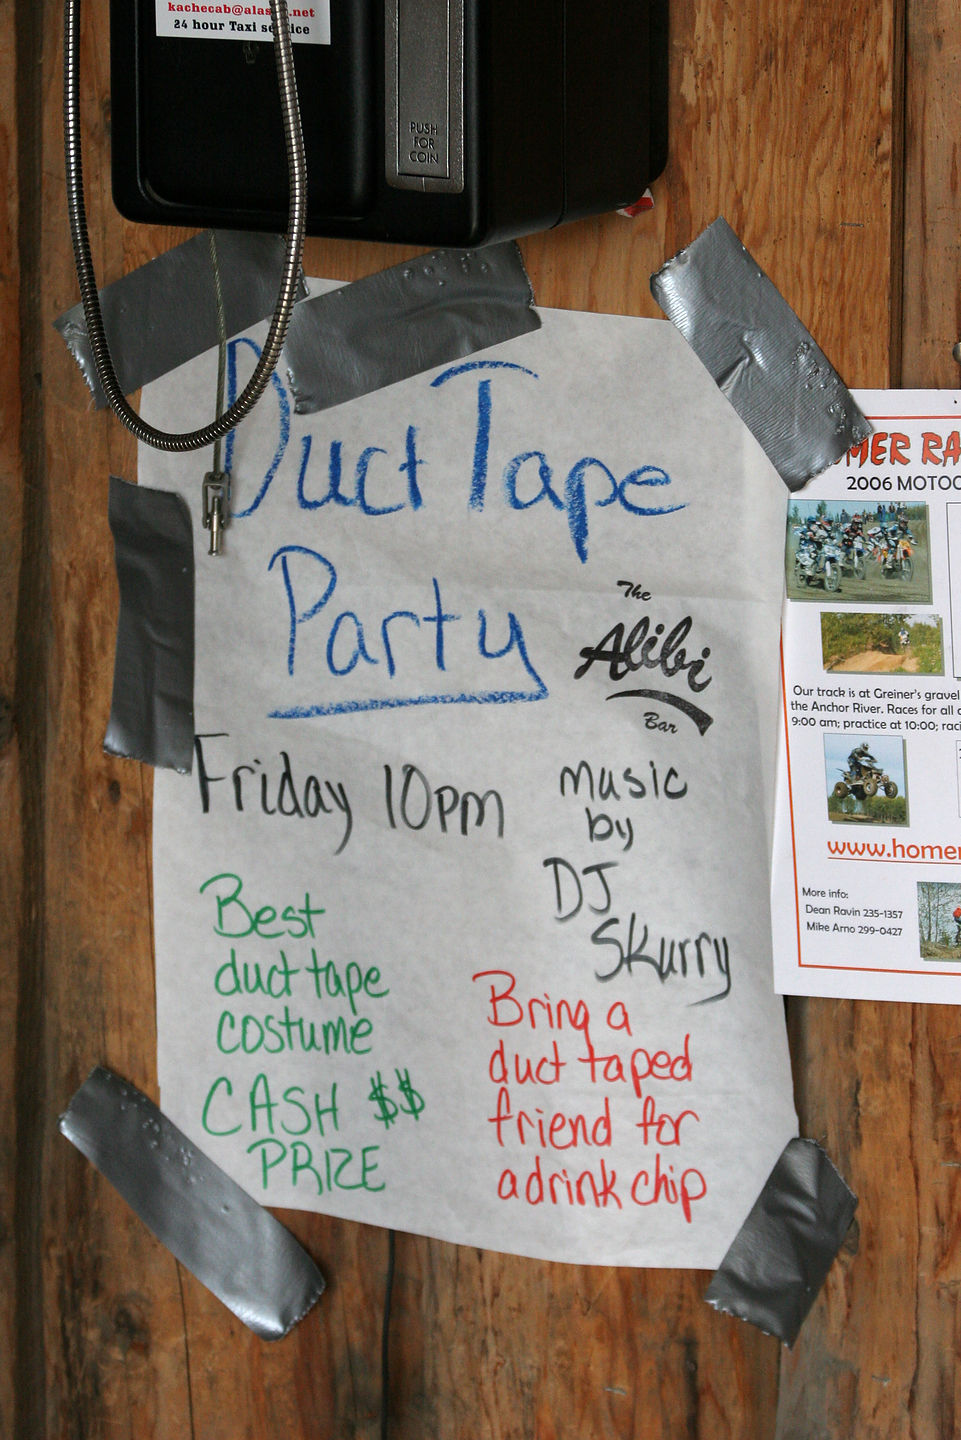 kachecab@alaska.net
24 hour Taxi service
PUSH
FOR
COIN
Duct Tape
Party
The
Alibi
Bar
Friday 10pm
music
by
DJ
Skurry
Best
duct tape
costume
CASH $$
PRIZE
Bring a
duct taped
friend for
a drink chip
MER RA
2006 MOTOC
Our track is at Greiner's gravel
the Anchor River. Races for all
9:00 am; practice at 10:00; raci
www.homer
More info:
Dean Ravin 235-1357
Mike Arno 299-0427